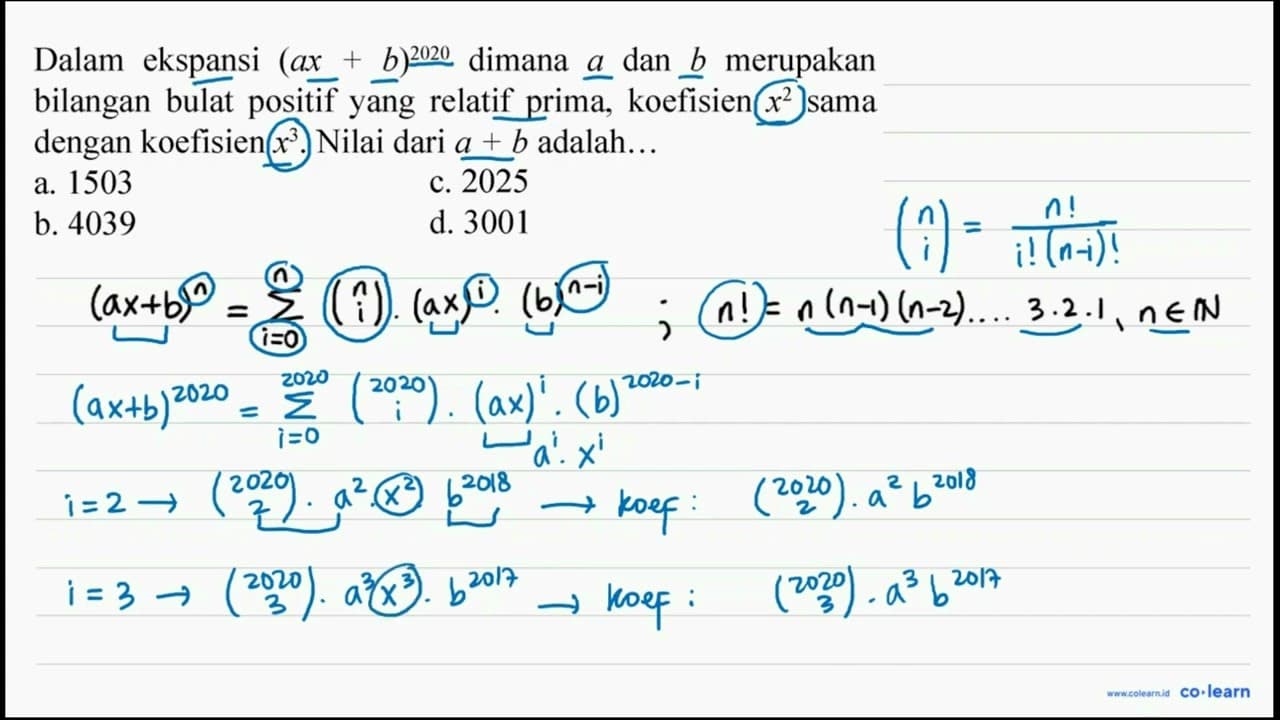 Dalam ekspansi (ax + b)²⁰²⁰ dimana a dan b merupakan
bilangan bulat positif yang relatif prima, koefisien x² sama
dengan koefisien x³. Nilai dari a + b adalah…
a. 1503
c. 2025
b. 4039
d. 3001
(n i) = n! / i!(n-i)!
(ax+b)ⁿ = Σ_{i=0}^{n} (n i) . (ax)ⁱ . (b)ⁿ⁻ⁱ ; n! = n(n-1)(n-2).... 3.2.1, n ∈ ℕ
(ax+b)²⁰²⁰ = Σ_{i=0}^{2020} (2020 i) . (ax)ⁱ . (b)²⁰²⁰⁻ⁱ
aⁱ . xⁱ
i = 2 → (2020 2) . a² . x² b²⁰¹⁸ → koef : (2020 2) . a² b²⁰¹⁸
i = 3 → (2020 3) . a³ x³ . b²⁰¹⁷ → koef : (2020 3) . a³ b²⁰¹⁷
www.colearn.id co·learn